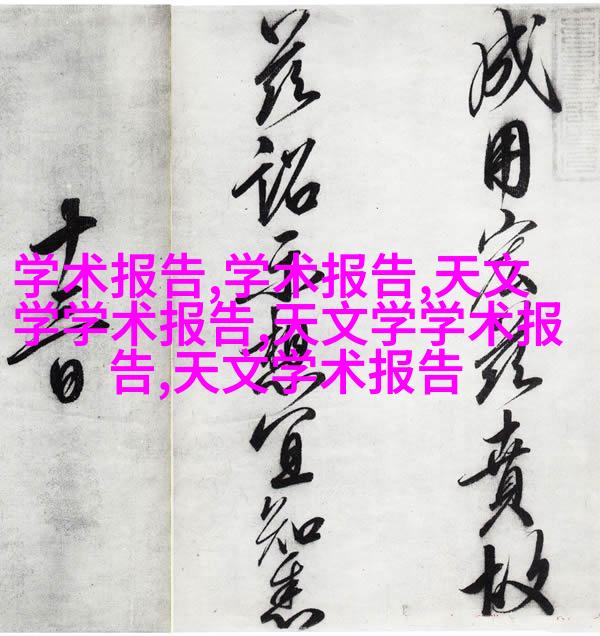 学术报告,学术报告,天文
学学术报告,天文学学术报
告,天文学术报告
成用宏兹賁故
兹詔示想宜知悉
十日